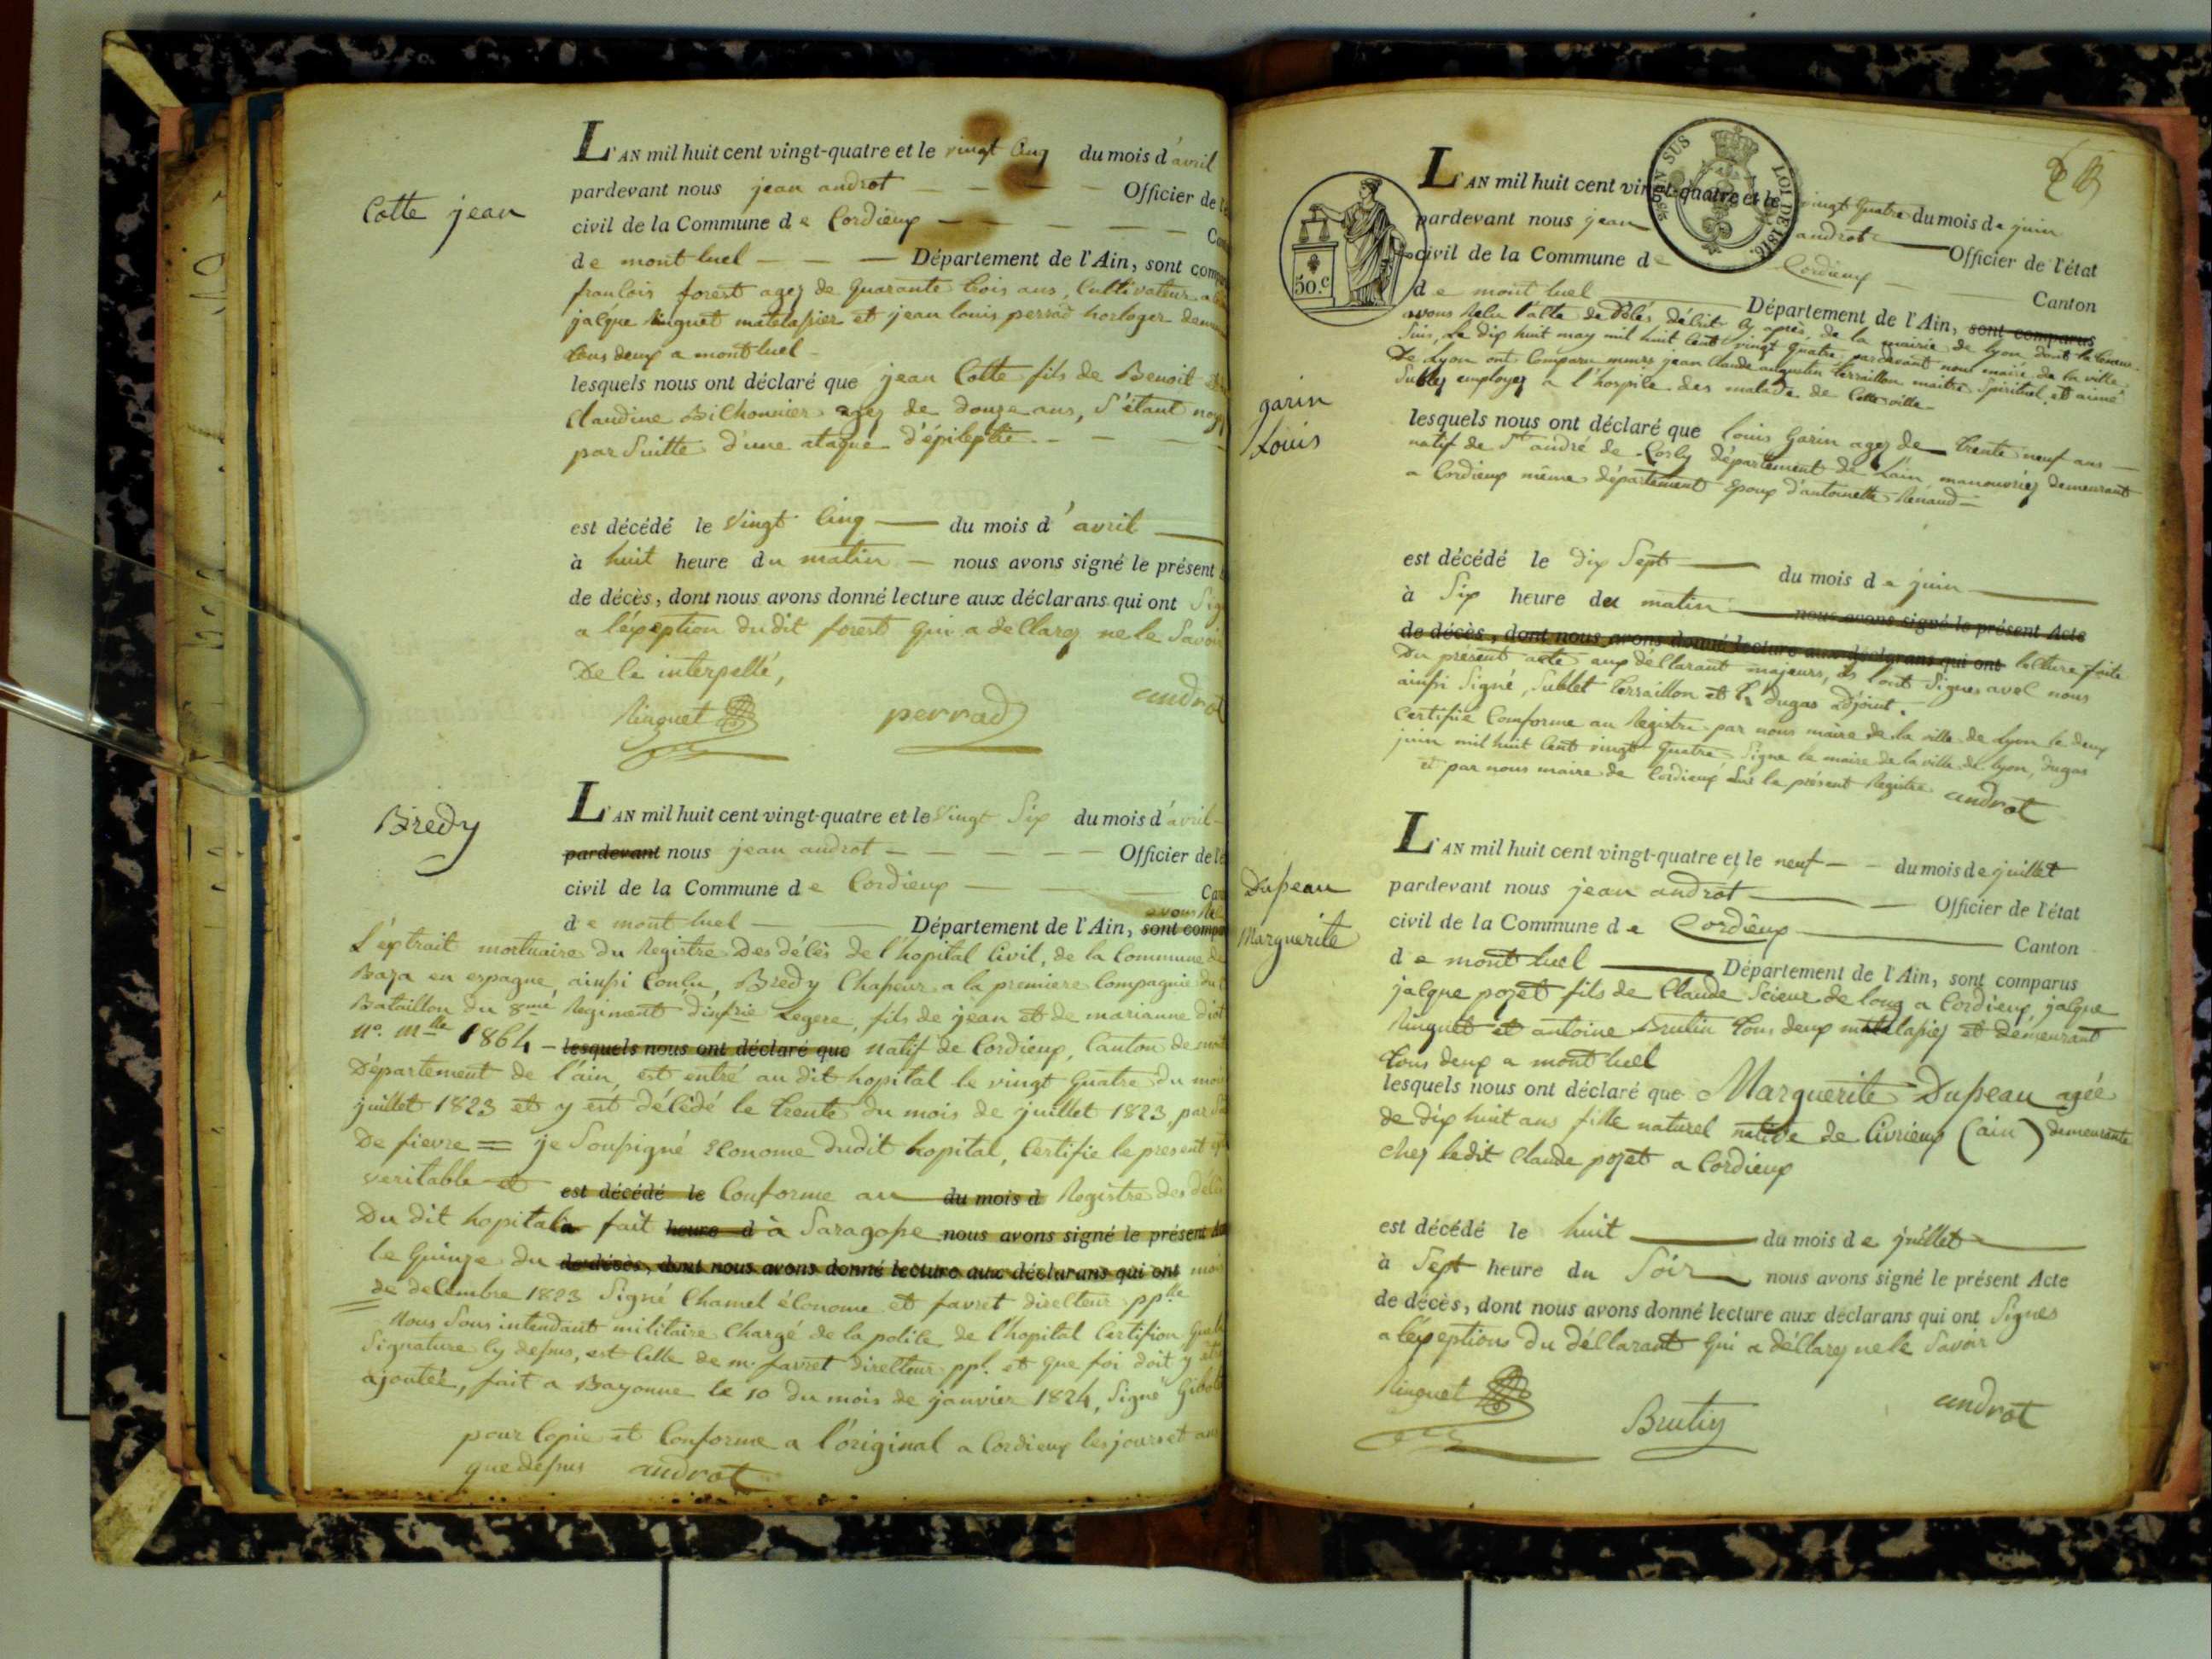 Cotte jean
L'AN mil huit cent vingt-quatre et le vingt Cinq du mois d'avril
pardevant nous jean androt Officier de
civil de la Commune de Cordieux
de mont luel Département de l'Ain, sont
francois forest agez de quarante trois ans, Cultivateur
jacque Ringuet matelassier et jean louis perrad horloger
tous deux a mont luel
lesquels nous ont déclaré que jean Cotte fils de Benoit
Claudine Bichonnier agez de douze ans, S'étant
par Suitte d'une ataque d'épileptie
est décédé le Vingt Cinq du mois d'avril
à huit heure du matin nous avons signé le présent
de décès, dont nous avons donné lecture aux déclarans qui ont
a l'éxeption dudit forest qui a declarez ne le Savoir
De le interpellé,
Ringuet perrad androt
Bredy
L'AN mil huit cent vingt-quatre et le Vingt Six du mois d'avril
pardevant nous jean androt Officier de
civil de la Commune de Cordieux
avons
de mont luel Département de l'Ain, sont
L'éxtrait mortuaire du Registre Des décès de l'hopital Civil, de la Commune de
Baza en espagne, ainsi Conçu, Bredy Chasseur a la premiere Compagnie du
Bataillon du 8me Regiment d'infrie Legere, fils de jean et de marianne
N°. Mlle 1864 - lesquels nous ont déclaré que natif de Cordieux, Canton de
Département de l'ain, est entré au dit hopital le vingt quatre du mois
juillet 1823 et y est décédé le trente du mois de juillet 1823, par
De fievre = je Soussigné Econome dudit hopital, Certifie le present
veritable et est décédé le Conforme au du mois d Registre des
Du dit hopital fait heure d à Saragosse nous avons signé le présent
le quinze du de décès, dont nous avons donné lecture aux déclarans qui ont mois
de decembre 1823 Signé Chamel économe et favret directeur pple
Nous Sous intendant militaire Chargé de la police de l'hopital Certifion que la
Signature Cy dessus, est Celle de m. favret directeur ppl. et que foi doit y
ajoutée, fait a Bayonne le 10 du mois de janvier 1824, Signé
pour Copie et Conforme a l'original a Cordieux les jours et an
que dessus androt
LOI DE 1816.
50.c
L'AN mil huit cent vingt-quatre et le vingt quatre du mois de juin
pardevant nous jean androt Officier de l'état
civil de la Commune de Cordieux Canton
de mont luel Département de l'Ain, sont comparus
avons Relu l'acte de décès décrit Cy après, de la mairie de lyon dont la teneur
Suis, Le dix huit may mil huit Cent vingt quatre pardevant nous maire de la ville
De Lyon ont Comparu jean Claude augustin terraillon maitre Spirituel et aimé
Sublet employez a l'hospice des malade de Cette ville
garin
Louis
lesquels nous ont déclaré que louis Garin agez de trente neuf ans
natif de St andré de Corcy département de Lain, manouvriez demeurant
a Cordieux même département Epoux d'antoinette Renaud
est décédé le dix Sept du mois de juin
à Six heure du matin nous avons signé le présent Acte
de décès, dont nous avons donné lecture aux déclarans qui ont lecture faite
Du présent acte aux déclarant majeurs, ils l'ont Signes avec nous
ainsi Signé, Sublet terraillon et dugas adjoint.
Certifié Conforme au Registre par nous maire de la ville de Lyon le deux
juin mil huit Cent vingt quatre, Signe le maire de la ville de lyon, dugas
et par nous maire de Cordieux Sur le présent Registre androt
Dupeau
Marguerite
L'AN mil huit cent vingt-quatre et le neuf du mois de juillet
pardevant nous jean androt Officier de l'état
civil de la Commune de Cordieux Canton
de mont luel Département de l'Ain, sont comparus
jacque pozet fils de Claude Scieur de long a Cordieux, jacque
Ringuet et antoine Brutin tous deux matelassiez et Demeurant
tous deux a mont luel
lesquels nous ont déclaré que Marguerite Dupeau agée
de dix huit ans fille naturel native de Civrieux (ain) demeurante
chez ledit Claude pozet a Cordieux
est décédé le huit du mois de juillet
à Sept heure du Soir nous avons signé le présent Acte
de décès, dont nous avons donné lecture aux déclarans qui ont Signes
a l'éxeptions du déclarant qui a déclarez ne le Savoir
Ringuet Brutin androt